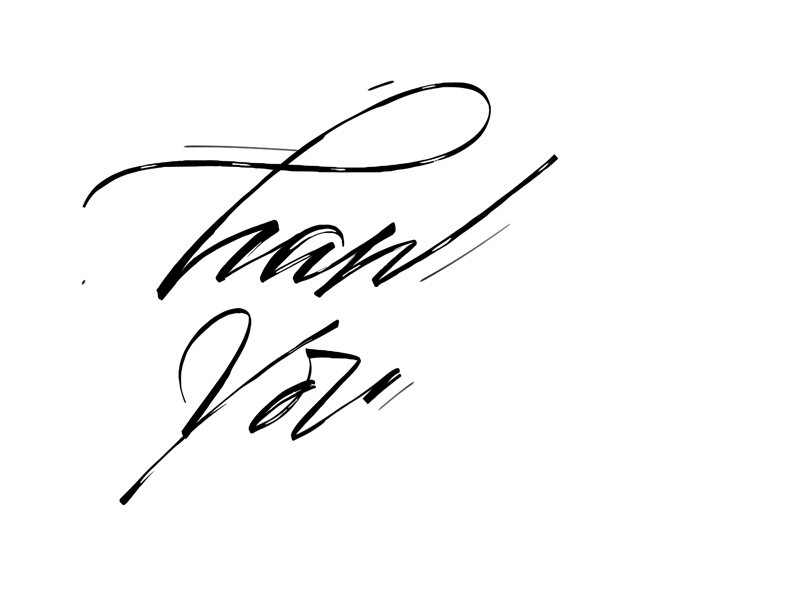 Than
You